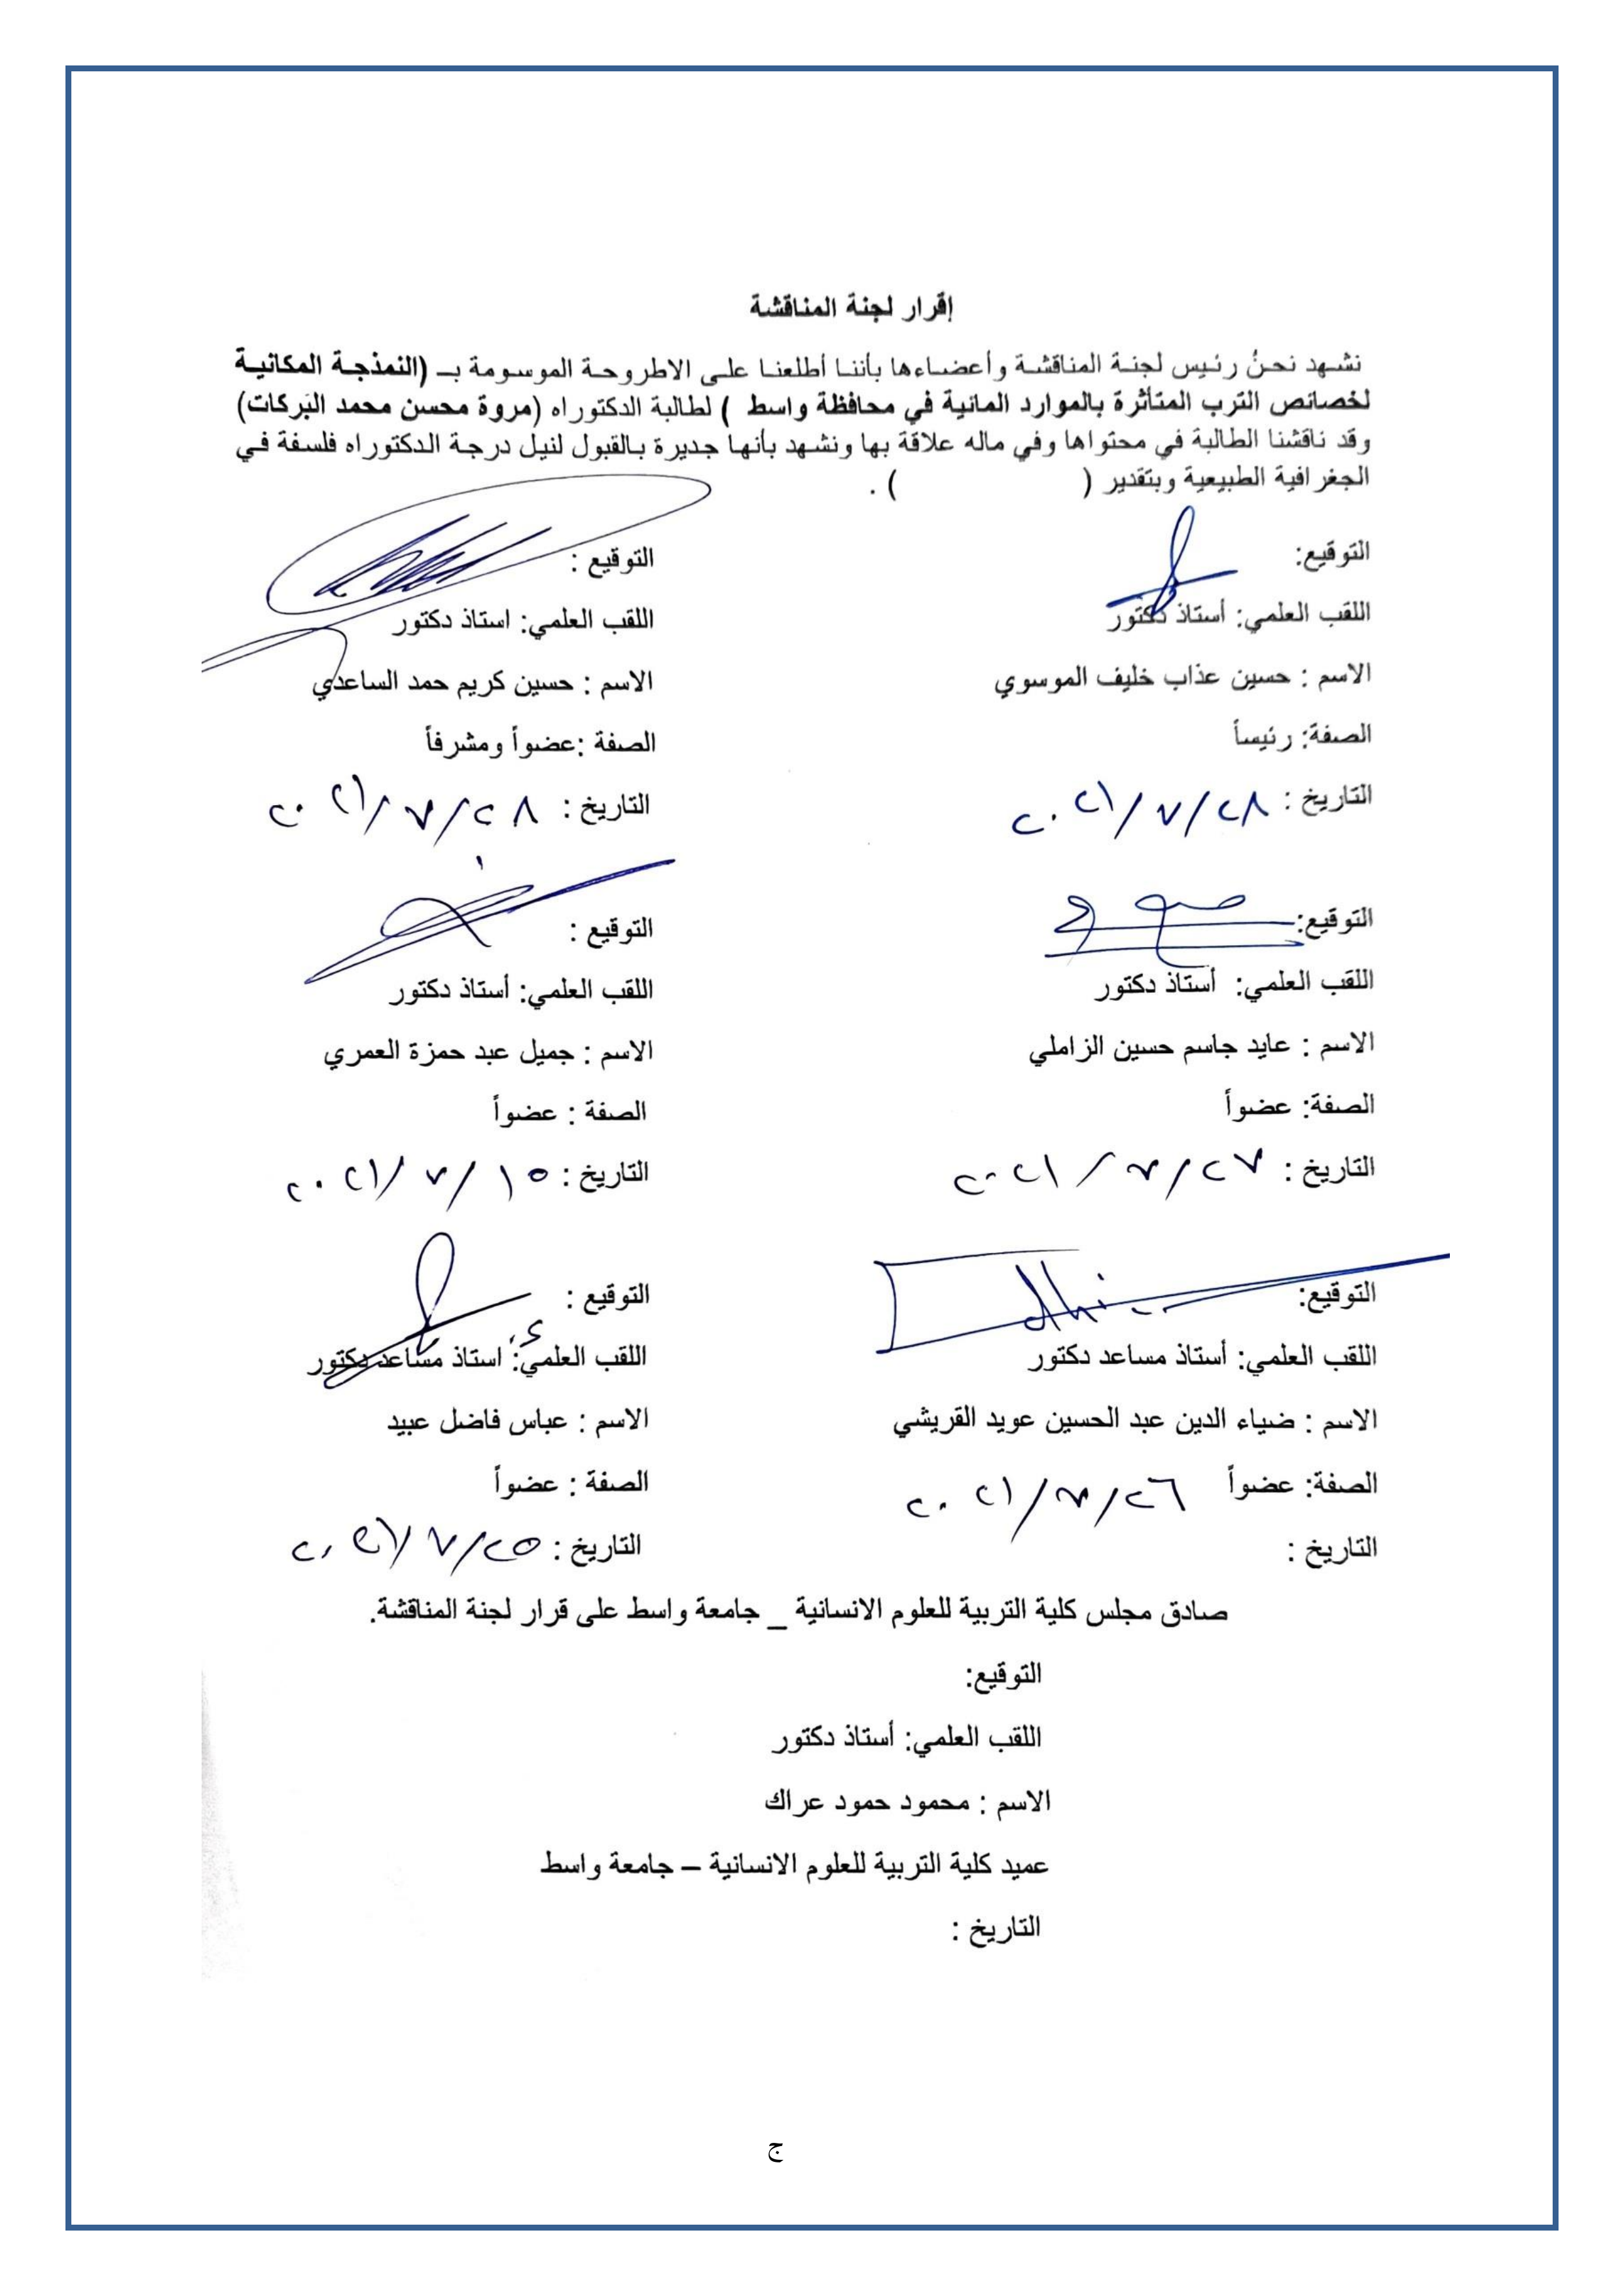 إقرار لجنة المناقشة
نشهد نحنُ رئيس لجنة المناقشة وأعضاءها بأننا أطلعنا على الاطروحة الموسومة بـ (النمذجة المكانية
لخصائص الترب المتأثرة بالموارد المائية في محافظة واسط ) لطالبة الدكتوراه (مروة محسن محمد البَركات)
وقد ناقشنا الطالبة في محتواها وفي ماله علاقة بها ونشهد بأنها جديرة بالقبول لنيل درجة الدكتوراه فلسفة في
الجغرافية الطبيعية وبتقدير ( ) .
التوقيع:
اللقب العلمي: أستاذ دكتور
الاسم : حسين عذاب خليف الموسوي
الصفة: رئيساً
التاريخ : ٢٠٢١/٧/٢٨
التوقيع :
اللقب العلمي: استاذ دكتور
الاسم : حسين كريم حمد الساعدي
الصفة :عضواً ومشرفاً
التاريخ : ٢٠٢١/٧/٢٨
التوقيع:
اللقب العلمي: أستاذ دكتور
الاسم : عايد جاسم حسين الزاملي
الصفة: عضواً
التاريخ : ٢٠٢١/٧/٢٧
التوقيع :
اللقب العلمي: أستاذ دكتور
الاسم : جميل عبد حمزة العمري
الصفة : عضواً
التاريخ : ٢٠٢١/٧/١٥
التوقيع:
اللقب العلمي: أستاذ مساعد دكتور
الاسم : ضياء الدين عبد الحسين عويد القريشي
الصفة: عضواً ٢٠٢١/٧/٢٦
التاريخ :
التوقيع :
اللقب العلمي: استاذ مساعد دكتور
الاسم : عباس فاضل عبيد
الصفة : عضواً
التاريخ : ٢٠٢١/٧/٢٥
صادق مجلس كلية التربية للعلوم الانسانية _ جامعة واسط على قرار لجنة المناقشة.
التوقيع:
اللقب العلمي: أستاذ دكتور
الاسم : محمود حمود عراك
عميد كلية التربية للعلوم الانسانية – جامعة واسط
التاريخ :
ج